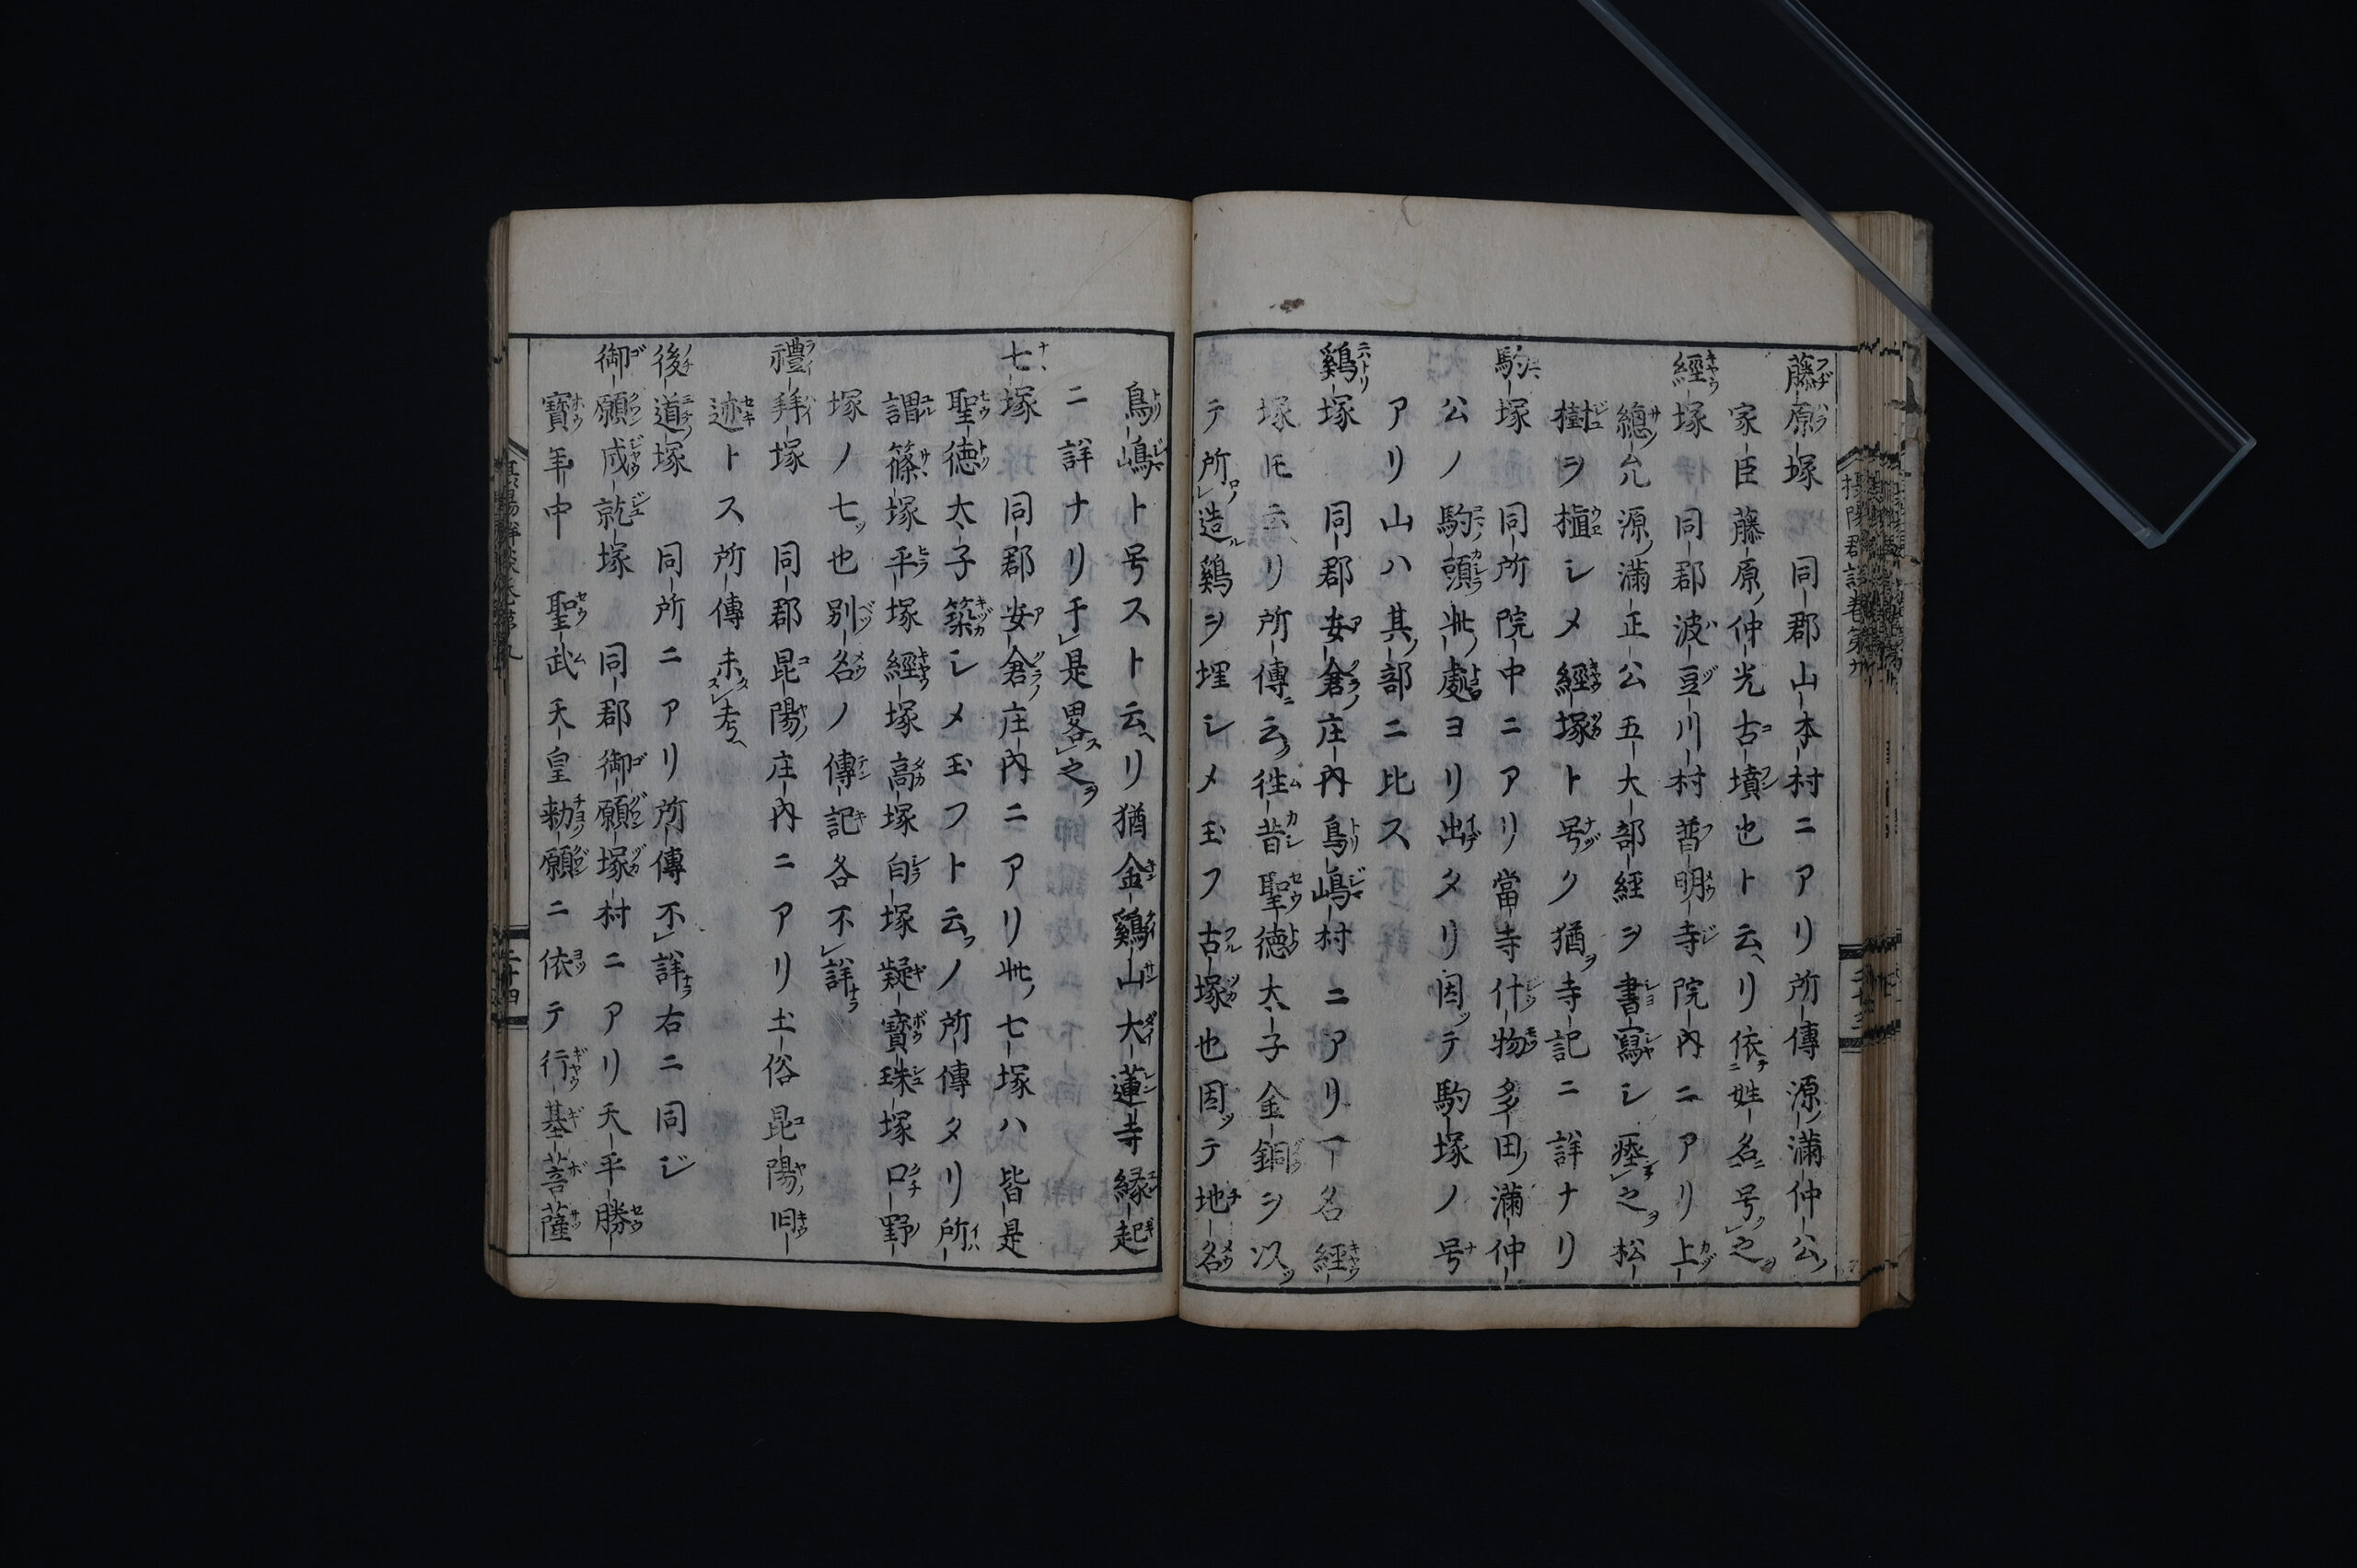 藤原塚 同郡山本村ニアリ所傳源ノ滿仲公ノ
家臣藤原ノ仲光古墳也ト云ヘリ依テ姓名ニ号ク之ヲ
經塚 同郡波豆川村普明寺院内ニアリ上
總ノ允源ノ滿正公五大部經ヲ書寫シ㘸之ヲ松
樹ヲ植シメ經塚ト号ク猶ヲ寺記ニ詳ナリ
駒塚 同所院中ニアリ當寺什物多田ノ滿仲
公ノ駒ノ頭此ノ處ヨリ出タリ因ッテ駒塚ノ号
アリ山ハ其ノ部ニ比ス
鷄塚 同郡安倉ノ庄内鳥嶋村ニアリ一名經
塚トモ云ヘリ所傳ニ云フ徃昔聖德太子金銅ヲ以ッ
テ所ロノ造ル鷄ヲ埋シメ玉フ古塚也因ッテ地名
鳥嶋ト号スト云ヘリ猶金鷄山大蓮寺縁起
ニ詳ナリ于是畧ス之ヲ
七塚 同郡安倉ノ庄内ニアリ此ノ七塚ハ皆是
聖徳太子築シメ玉フト云フノ所傳タリ所
謂篠塚平塚經塚高塚白塚疑寳珠塚口野
塚ノ七ッ也別名ノ傳記各不詳ナラ
禮拜塚 同郡昆陽ノ庄内ニアリ土俗昆陽ノ旧
迹トス所傳未タスレ考ヘ
後道塚 同所ニアリ所傳不詳ナラ右ニ同ジ
御願成就塚 同郡御願塚村ニアリ天平勝
寳年中 聖武天皇勅願ニ依テ行基菩薩